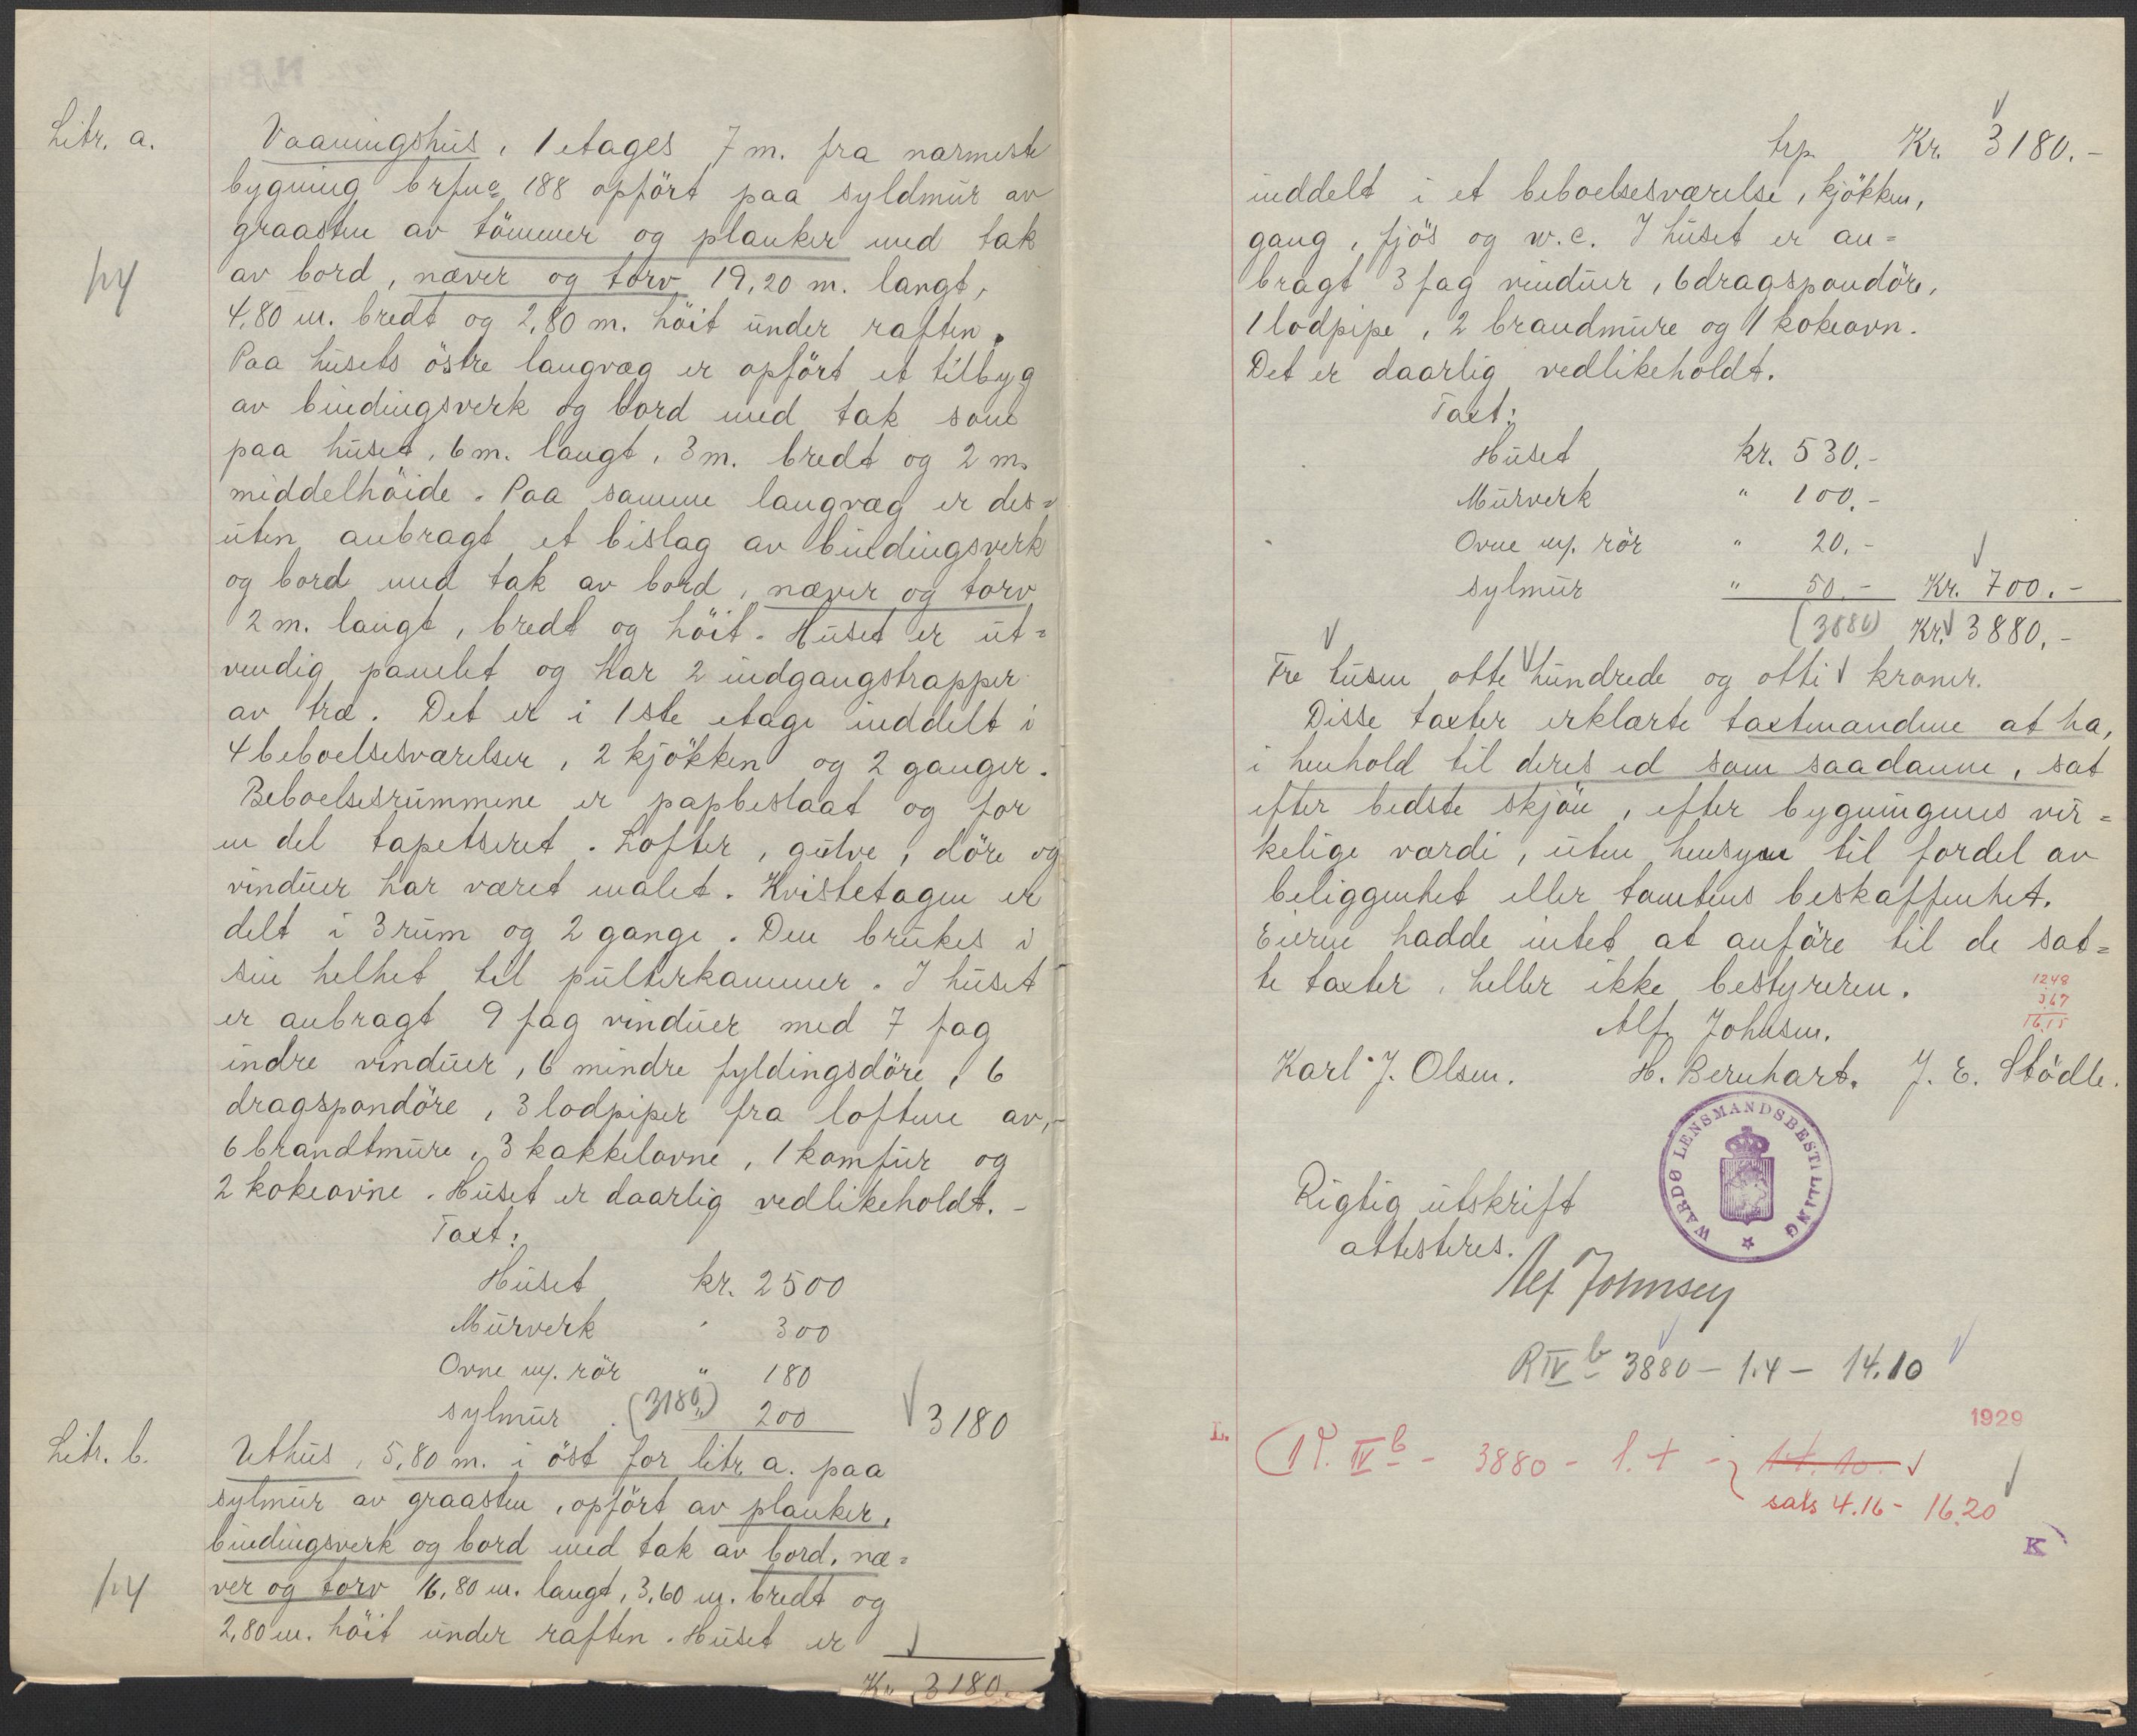 Litr. a.
Vaaningshus, 1 etages 7 m. fra nærmeste
bygning brfnr 188 opført paa syldmur av
graasten av tømmer og planker med tak
1.4
av bord, næver og torv 19,20 m. langt,
4,80 m. bredt og 2,80 m. höit under raften.
Paa husets östre langvæg er opfört et tilbyg
av bindingsverk og bord med tak som
paa huset, 6 m. langt, 3 m. bredt og 2 m.
middelhöide. Paa samme langvæg er des=
uten anbragt et bislag av bindingsverk
og bord med tak av bord, næver og torv
2 m. langt, bredt og höit. Huset er ut=
vendig panelet og har 2 indgangstrapper
av træ. Det er i 1ste etage inddelt i
4 beboelsesværelser, 2 kjökken og 2 ganger.
Beboelsesrummene er papbeslaat og for
en del tapetseret. Lofter, gulve, döre og
vinduer har været malet. Kvistetagen er
delt i 3 rum og 2 gange. Den brukes i
sin helhet til pulterkammer. I huset
er anbragt 9 fag vinduer med 7 fag
indre vinduer, 6 mindre fyldingsdöre, 6
dragspondöre, 3 lodpiper fra loftene av,-
6 brandtmure, 3 kakkelovne, 1 komfur og
2 kokeovne. Huset er daarlig vedlikeholdt. -
Taxt:
Huset kr. 2500
Murverk " 300
Ovne m/. rör " 180
sylmur (3180) " 200 3180
Litr. b.
Uthus, 5,80 m. i öst for litr. a. paa
sylmur av graasten, opfört av planker,
bindingsverk og bord med tak av bord, næ=
1.4
ver og torv 16,80 m. langt, 3,60 m. bredt og
2,80 m. höit under raften. Huset er
Kr. 3180.-
trp. Kr. 3180.-
inddelt i et beboelsesværelse, kjökken,
gang, fjös og w.c. I huset er an=
bragt 3 fag vinduer, 6 dragspondöre,
1 lodpipe, 2 brandmure og 1 kokeovn.
Det er daarlig vedlikeholdt.
Taxt:
Huset kr. 530.-
Murverk " 100.-
Ovne m/. rör " 20.-
sylmur " 50.- Kr. 700.-
(3880) Kr. 3880.-
Tre tusen otte hundrede og otti kroner.
Disse taxter erklærte taxtmændene at ha,
i henhold til deres ed som saadanne, sat
efter bedste skjön, efter bygningenes vir=
kelige værdi, uten hensyn til fordel av
beliggenhet eller tomtens beskaffenhet.
Eieren hadde intet at anföre til de sat=
te taxter, heller ikke bestyreren.
1248
367
16.15
Alf Johnsen.
Karl J. Olsen. H. Bernhart. J. E. Stödle.
WARDØ LENSMANDSBESTILLING
Rigtig utskrift
attesteres.
Alf Johnsen
R IV b 3880 - 1.4 - 14.10
1929
L.
IV b - 3880 - 1.4 - 14.10
sats 4.16 - 16.20
K